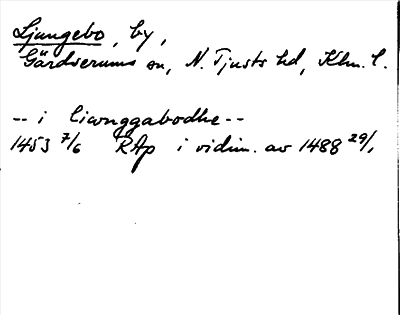 Ljungebo, by,
Gärdserums sn, N. Tjusts hd, Klm. l.
-- i liwnggabodhe --
1453 7/6 RAp i vidim. av 1488 29/1